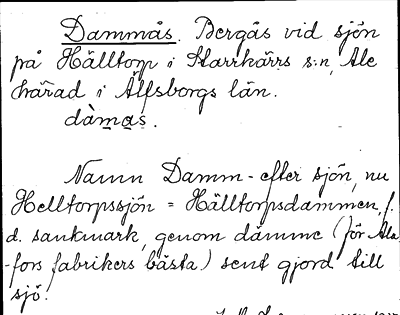 Dammås. Bergås vid sjön
på Hälltorp i Starrkärrs s:n, Ale
härad i Älfsborgs län.
dàmas.
Namn Damm- efter sjön, nu
Helltorpssjön = Hälltorpsdammen, f.
d. sankmark, genom dämme (för Ala-
-fors fabrikers bästa) sent gjord till
sjö.